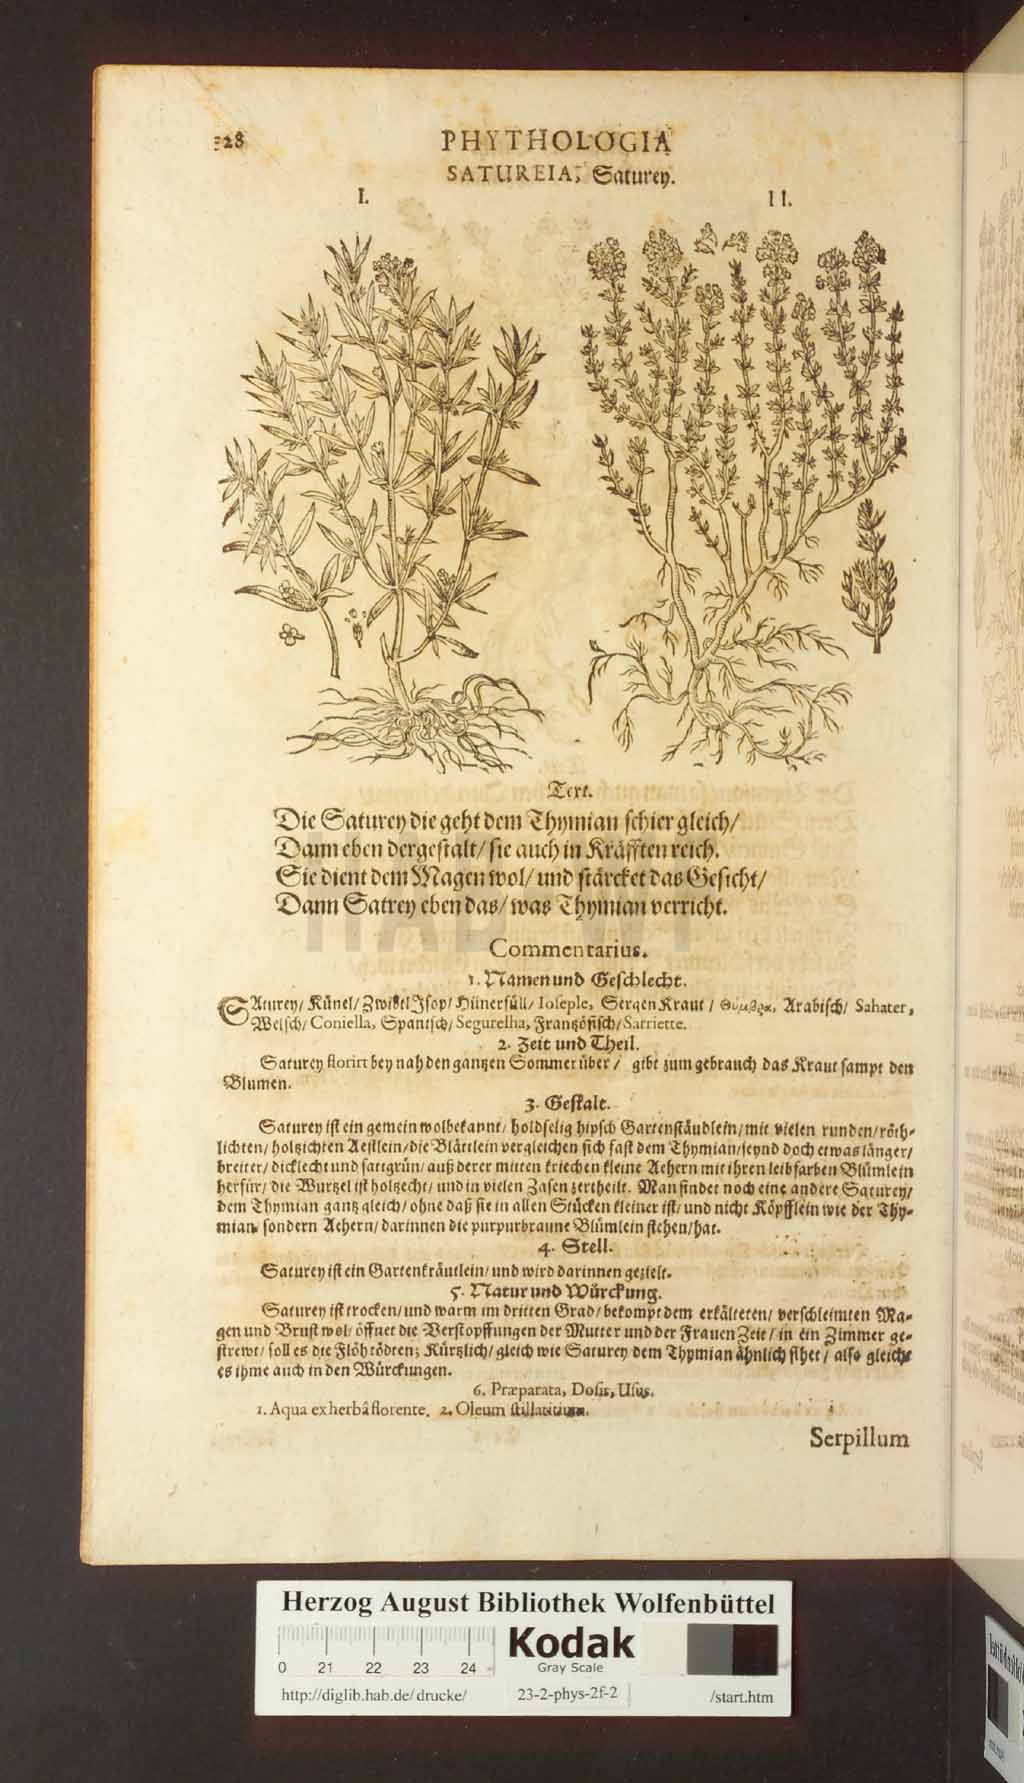 328
PHYTHOLOGIA
SATUREIA, Saturey.
I.
II.
Text.
Die Saturey die geht dem Thymian schier gleich/
Dann eben dergestalt/ sie auch in Kräfften reich.
Sie dient dem Magen wol/ und stärcket das Gesicht/
Dann Satrey eben das/ was Thymian verricht.
Commentarius.
1. Namen und Geschlecht.
SAturey/ Künel/ Zwibel Jsop/ Hünerfüll/ Ioseple, Sergen Kraut / Θύμβρα, Arabisch/ Sahater,
Welsch/ Coniella, Spantsch/ Segurelha, Frantzösisch/ Sarriette.
2. Zeit und Theil.
Saturey florirt bey nah den gantzen Sommer über / gibt zum gebrauch das Kraut sampt den
Blumen.
3. Gestalt.
Saturey ist ein gemein wolbekannt/ holdselig hipsch Gartenstäudlein/ mit vielen runden/ röth-
lichten/ holtzichten Aestlein/ die Blättlein vergleichen sich fast dem Thymian/ seynd doch etwas länger/
breiter/ dicklecht und sattgrün/ auß derer mitten kriechen kleine Aehern mit ihren leibfarben Blümlein
herfür/ die Wurtzel ist holtzecht/ und in vielen Zasen zertheilt. Man findet noch eine andere Saturey/
dem Thymian gantz gleich/ ohne daß sie in allen Stücken kleiner ist/ und nicht Köpfflein wie der Thy-
mian sondern Aehern/ darinnen die purpurbraune Blümlein stehen/ hat.
4. Stell.
Saturey ist ein Gartenkräutlein/ und wird darinnen gezielt.
5. Natur und Würckung.
Saturey ist trocken/ und warm im dritten Grad/ bekompt dem erkälteten/ verschleimten Ma-
gen und Brust wol/ öffnet die Verstopffungen der Mutter und der Frauen Zeit/ in ein Zimmer ge-
strewt/ soll es die Flöh tödten; Kürtzlich/ gleich wie Saturey dem Thymian ähnlich sihet / also gleicht
es ihme auch in den Würckungen.
6. Præparata, Dosis, Usus.
1. Aqua ex herbâ florente. 2. Oleum stillatitium.
Serpillum
HAB WF
Herzog August Bibliothek Wolfenbüttel
0 21 22 23 24
Kodak
Gray Scale
http://diglib.hab.de/drucke/ 23-2-phys-2f-2 /start.htm